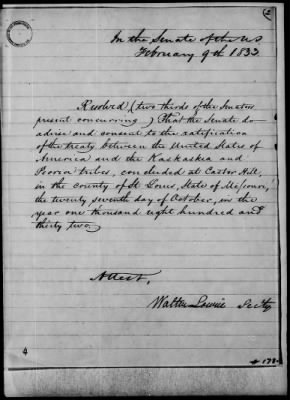 In the Senate of the US
February 9th 1833
Resolved (two thirds of the Senators
present concurring) That the Senate do
advise and consent to the ratification
of the treaty between the United States of
America and the Kaskaskea and
Peoria tribes, concluded at Castor Hill,
in the county of St Louis, State of Missouri,
the twenty seventh day of October, in the
year one thousand eight hundred and
thirty two.
Attest,
Walter Lowrie Secty